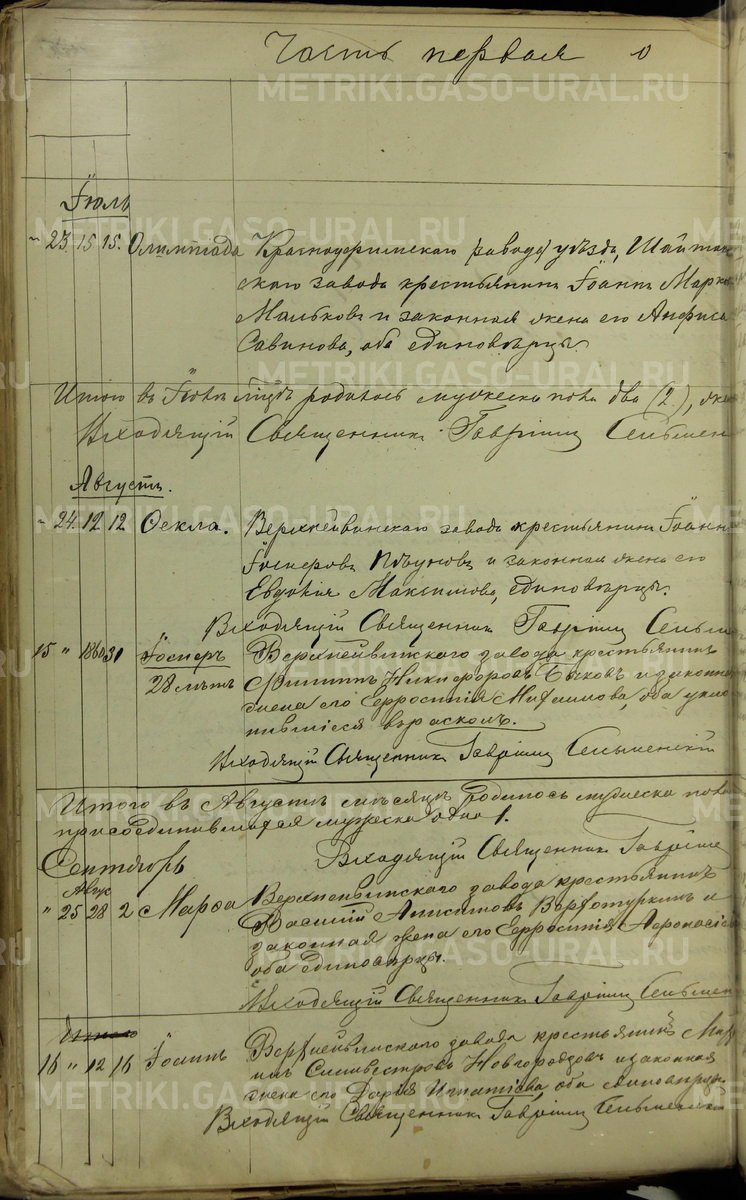 Часть первая о
Іюль
" 23 15 15. Олимпіада Красноуфимскаго заводо уѣзда, Шайтан-
скаго завода крестьянинъ Іоаннъ Марко
Мальковъ и законная жена его Анфиса
Савинова, оба единовѣрцы.
Итого въ Іюлѣ родилось мужеска пола два (2),
Входящій Священникъ Гавріилъ
Августъ.
" 24. 12 12 Ѳекла. Верхнейвинскаго завода крестьянинъ Іоаннъ
и законная жена его
Евдокія Максимова, единовѣрцы.
Входящій Священникъ Гавріилъ
15 " 1860 31 Верхнейвинскаго завода крестьянинъ
28 лѣтъ Филиппъ Никифоровъ Быковъ и законная
жена его Евросинія оба укло-
нившіеся въ расколъ.
Входящій Священникъ Гавріилъ
Итого въ Августѣ мѣсяцѣ родилось мужеска пола
присоединившагося мужеска одно 1.
Сентябрь Входящій Священникъ Гавріилъ
Авг
" 25 28 2 Марѳа Верхнейвинскаго завода крестьянинъ
Василій Анисимовъ Верхотуркинъ и
законная жена его Евросинія Аѳонасіева
оба единовѣрцы.
Входящій Священникъ Гавріилъ
Итого
16 " 12 16 Іоаннъ Верхнейвинскаго завода крестьянинъ
Сильвестровъ Новгородовъ и законная
жена его Дарія Игнатіева, оба единовѣрцы
Входящій Священникъ Гавріилъ
METRIKI.GASO-URAL.RU